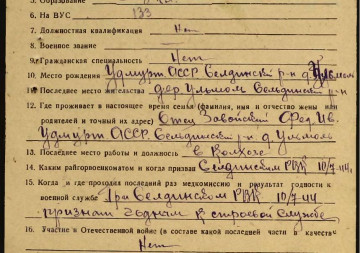 5. Образование
6. На ВУС 133
7. Должностная квалификация Нет
8. Военное звание —
9. Гражданская специальность Нет
10. Место рождения Удмурт АССР Селдинский р-н д. Ульмоль
11. Последнее место жительства дер Ульмоль Селдинский р-н
12. Где проживает в настоящее время семья (фамилия, имя и отчество жены или
родителей и точный их адрес) Отец Фед. Ив.
Удмурт АССР. Селдинский р-н д. Ульмоль
13. Последнее место работы и должность в Колхозе
14. Каким райгорвоенкоматом и когда призван РВК 10/7-44
15. Когда и где проходил последний раз медкомиссию и результат годности к
военной службе При Селдинском РВК 10/7-44
признан годным к строевой службе
16. Участие в Отечественной войне (в составе какой последней части в качестве
Нет